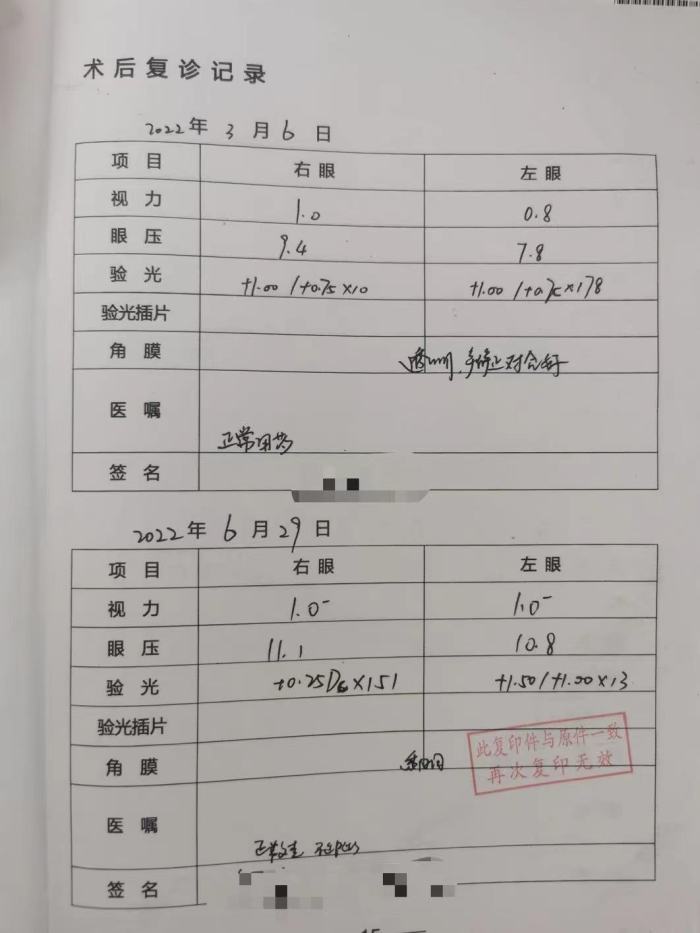 术后复诊记录
2022年 3月 6日
项目 右眼 左眼
视力 1.0 0.8
眼压 9.4 7.8
验光 +1.00/+0.75×10 +1.00/+0.75×178
验光插片
角膜 透明, 对合好
医嘱 正常用药
签名
2022年 6月 29日
项目 右眼 左眼
视力 1.0⁻ 1.0⁻
眼压 11.1 10.8
验光 +0.25Dc×151 +1.50/+1.00×13
验光插片
此复印件与原件一致
再次复印无效
角膜
医嘱
签名